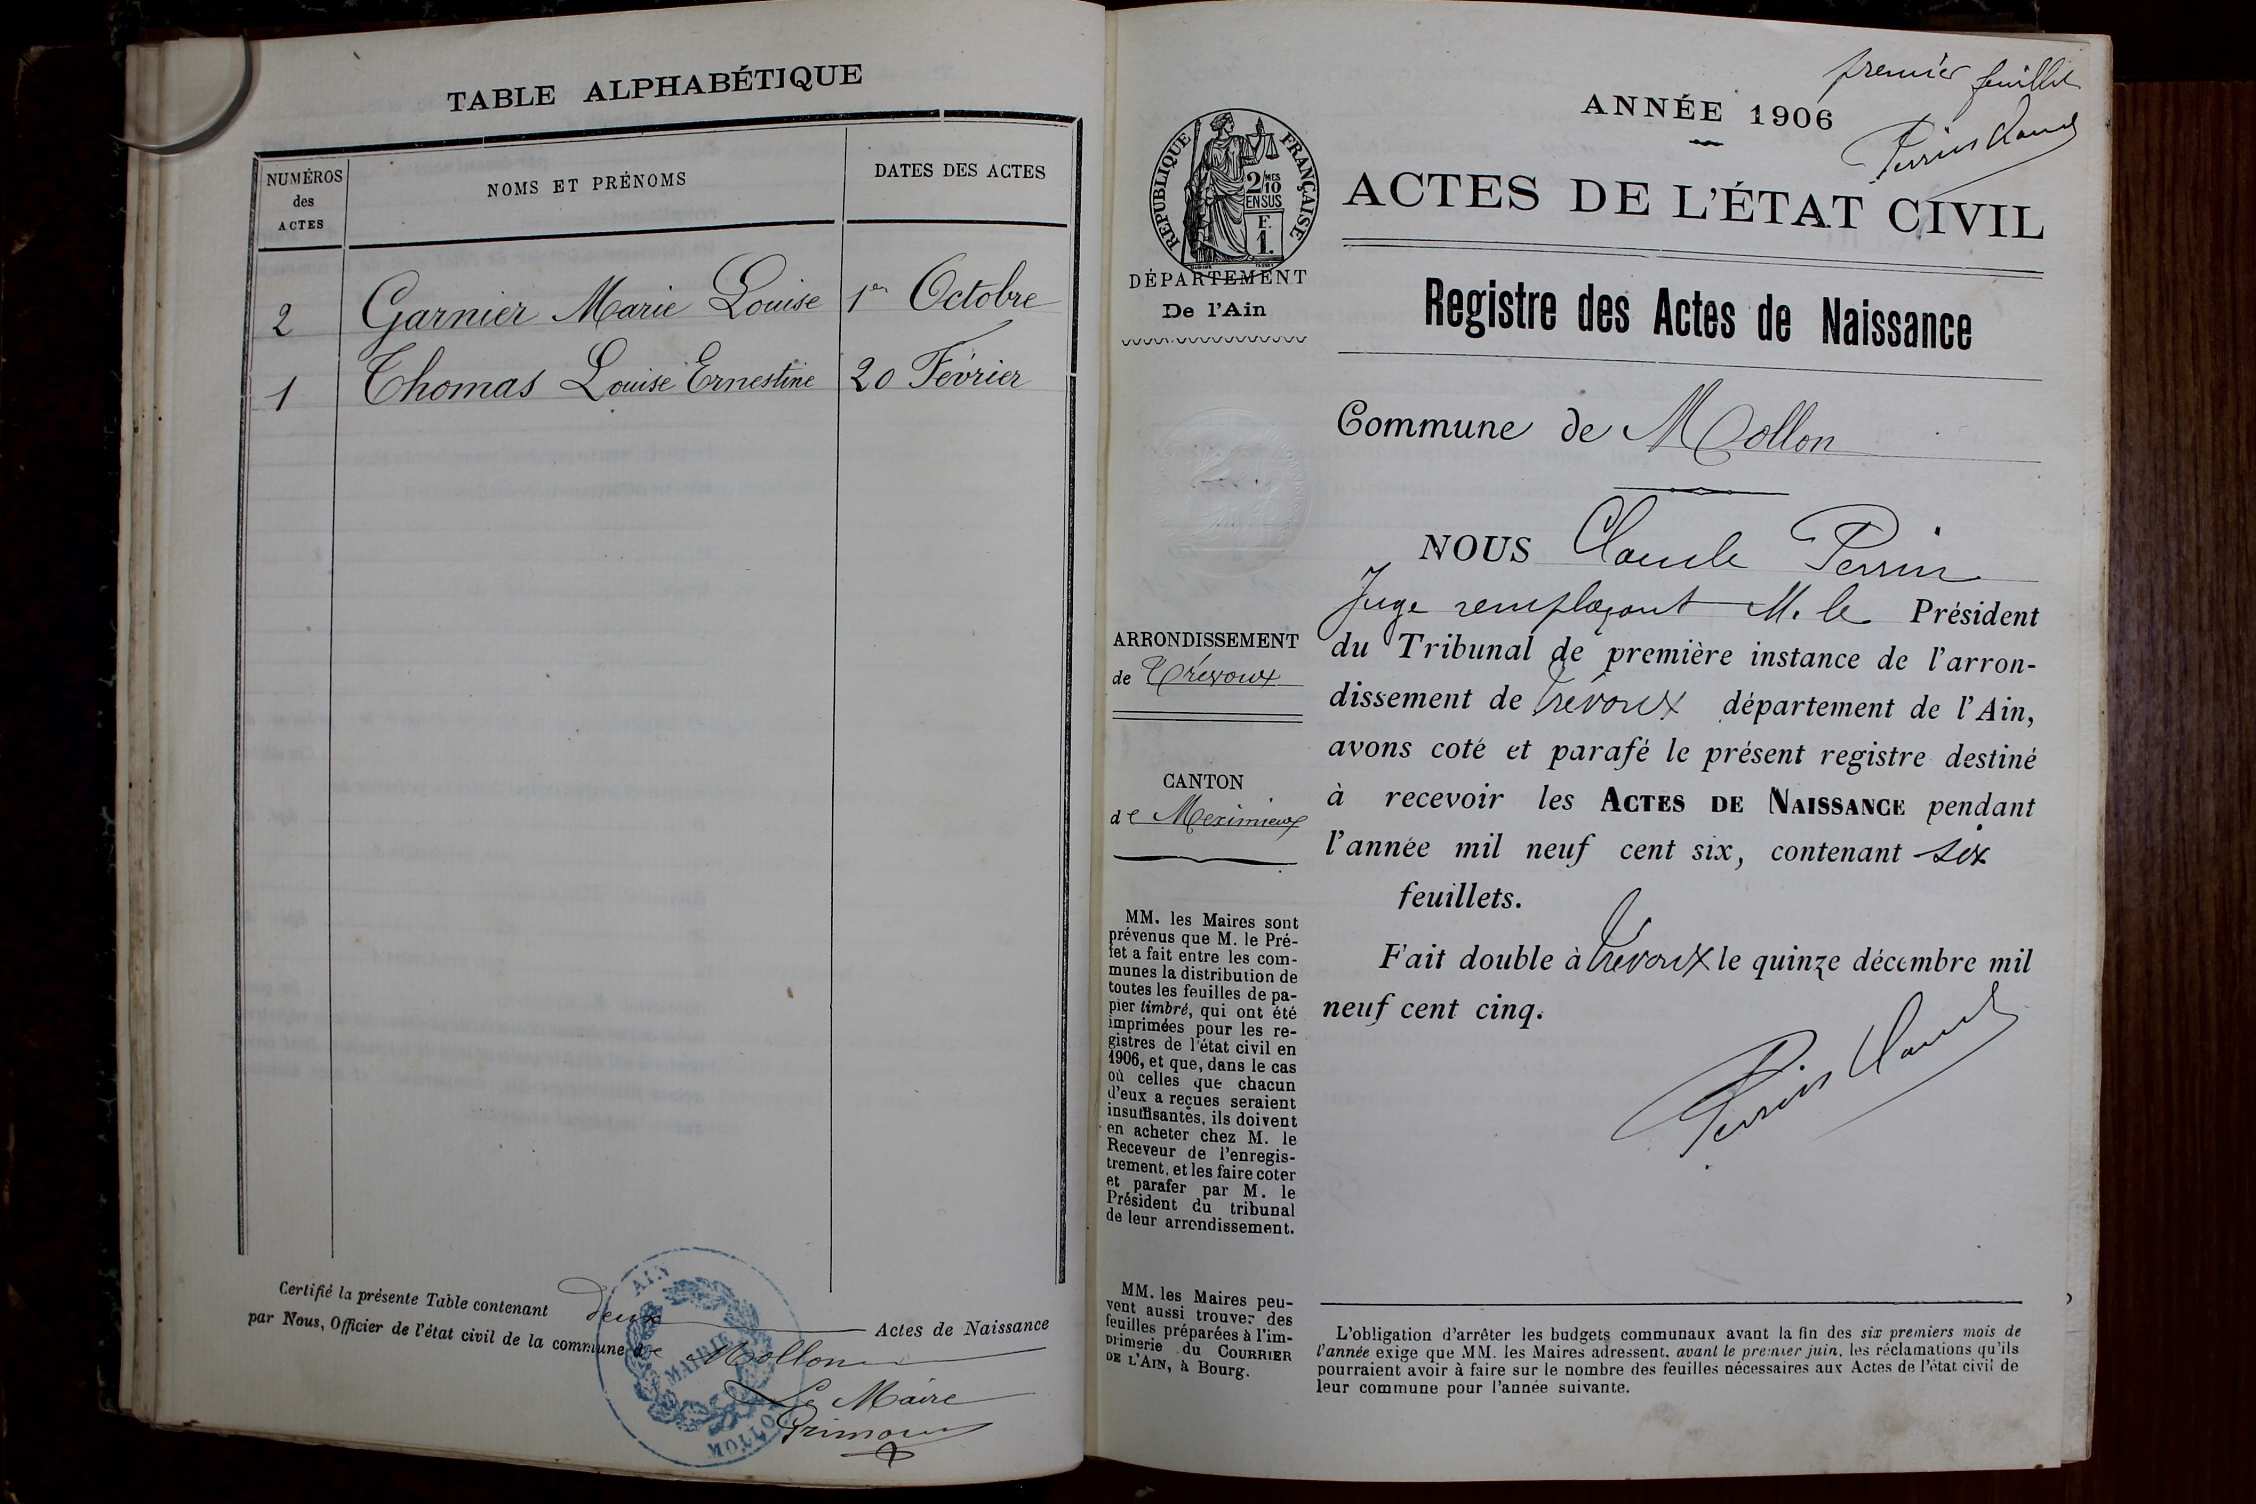 TABLE ALPHABÉTIQUE
NUMÉROS
des
ACTES
NOMS ET PRÉNOMS
DATES DES ACTES
2 Garnier Marie Louise 1er Octobre
1 Thomas Louise Ernestine 20 Février
Certifié la présente Table contenant deux Actes de Naissance
par Nous, Officier de l'état civil de la commune de Mollon
Le Maire
AIN
MAIRIE
MOLLON
premier feuillet
Perrin Claude
ANNÉE 1906
RÉPUBLIQUE FRANÇAISE
2/10 MES
EN SUS
F.
1.
ACTES DE L'ÉTAT CIVIL
DÉPARTEMENT
De l'Ain
Registre des Actes de Naissance
Commune de Mollon
NOUS Claude Perrin
Juge remplaçant M. le Président
du Tribunal de première instance de l'arron-
dissement de Trévoux département de l'Ain,
avons coté et parafé le présent registre destiné
à recevoir les ACTES DE NAISSANCE pendant
l'année mil neuf cent six, contenant six
feuillets.
Fait double à Trévoux le quinze décembre mil
neuf cent cinq.
Perrin Claude
ARRONDISSEMENT
de Trévoux
CANTON
de Meximieux
MM. les Maires sont
prévenus que M. le Pré-
fet a fait entre les com-
munes la distribution de
toutes les feuilles de pa-
pier timbré, qui ont été
imprimées pour les re-
gistres de l'état civil en
1906, et que, dans le cas
où celles que chacun
d'eux a reçues seraient
insuffisantes, ils doivent
en acheter chez M. le
Receveur de l'enregis-
trement, et les faire coter
et parafer par M. le
Président du tribunal
de leur arrondissement.
MM. les Maires peu-
vent aussi trouver des
feuilles préparées à l'im-
primerie du COURRIER
DE L'AIN, à Bourg.
L'obligation d'arrêter les budgets communaux avant la fin des six premiers mois de
l'année exige que MM. les Maires adressent, avant le premier juin, les réclamations qu'ils
pourraient avoir à faire sur le nombre des feuilles nécessaires aux Actes de l'état civil de
leur commune pour l'année suivante.